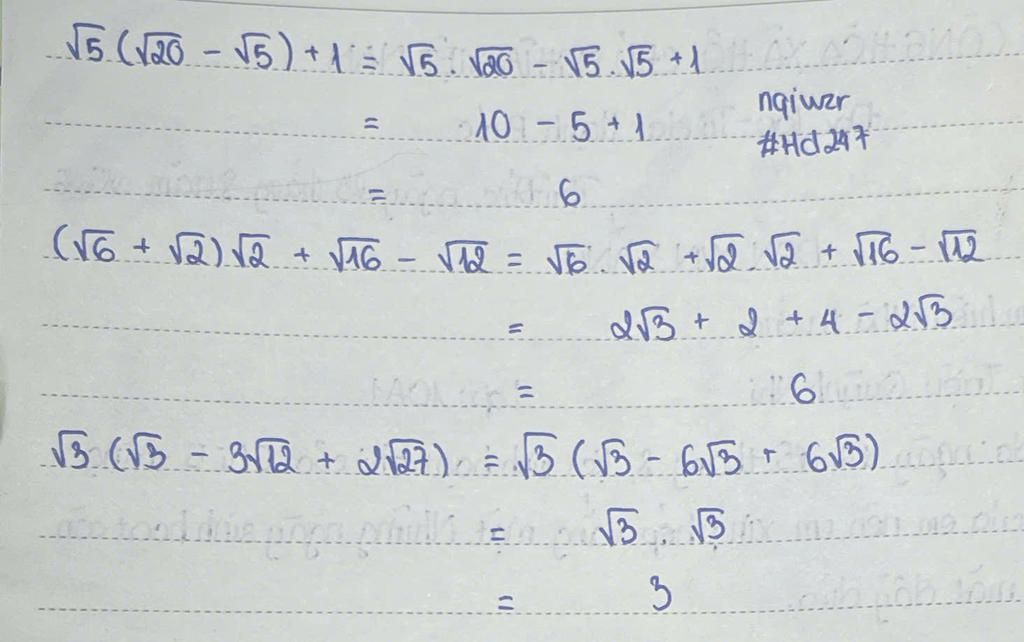 √5 (√20 - √5) + 1 = √5 . √20 - √5 . √5 + 1
= 10 - 5 + 1
nqiwzr
#Hd247
= 6
(√6 + √2) √2 + √16 - √12 = √6 . √2 + √2 . √2 + √16 - √12
= 2√3 + 2 + 4 - 2√3
= 6
√3 (√3 - 3√12 + 2√27) = √3 (√3 - 6√3 + 6√3)
= √3 . √3
= 3